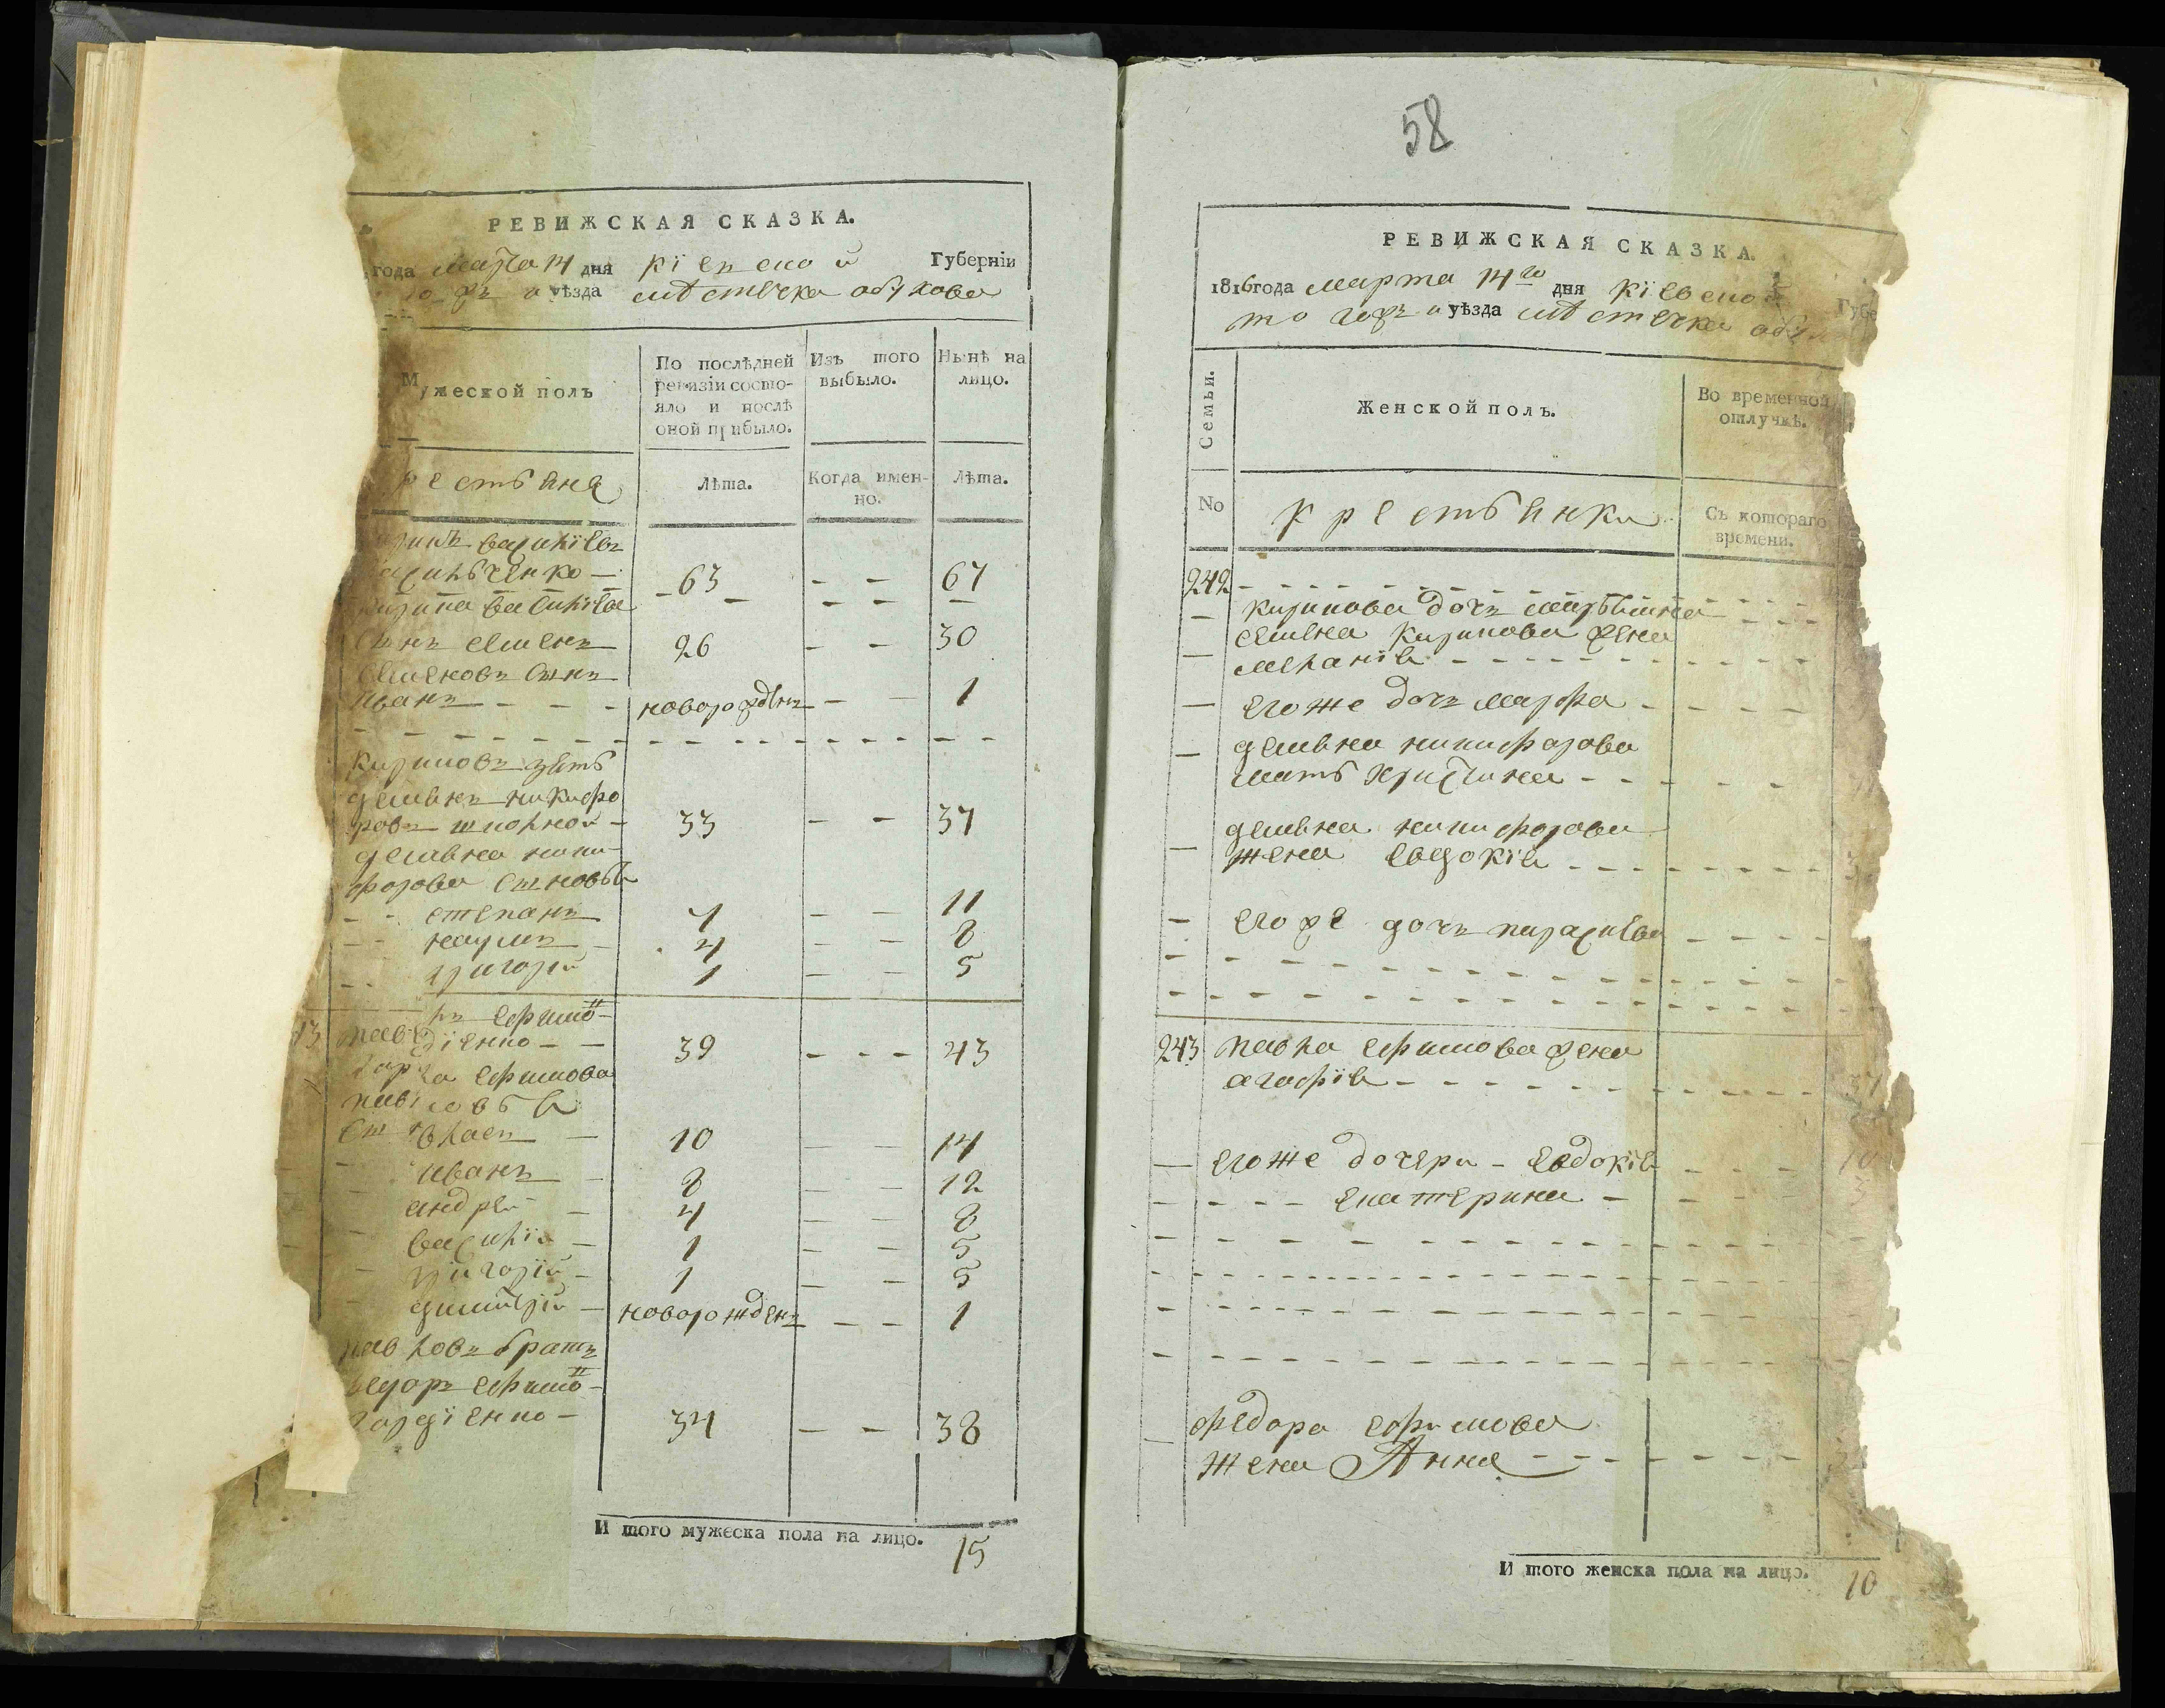 РЕВИЖСКАЯ СКАЗКА.
года марта 14 дня кіевской Губерніи
уѣзда мѣстечка обухова
Мужеской полъ
По послѣдней ревизіи состояло и послѣ оной прибыло.
Изъ того выбыло.
Нынѣ на лицо.
рестьяня
Лѣта.
Когда именно.
Лѣта.
василіевъ
63 - - 67
кирила василіева
сынъ семенъ 26 - - 30
семеновъ сынъ
иванъ - - - новорожденъ - - 1
кириловъ зять
демянъ никифо
ровъ шполной - 33 - - 37
демяна ники-
форова сыновья
- - степанъ 7 - - 11
- - наумъ - 4 - - 8
- - григорій 1 - - 5
ефимо
діенко - - 39 - - - 43
ефимова
власъ - 10 - - 14
иванъ - 8 - - 12
андрей - 4 - - 8
василій - 1 - - 5
григорій - 1 - - 5
димитрій - новорожденъ - - 1
павловъ братъ
федоръ ефимо-
гордіенко - 34 - - 38
И того мужеска пола на лицо. 15
58
РЕВИЖСКАЯ СКАЗКА.
1816 года марта 14го дня кіевской Губе
то гожъ и уѣзда мѣстечка
Семьи.
Женской полъ.
Во временной отлучкѣ.
No
крестьянки
Съ котораго времени.
242
- кирилова дочь марьяна
семена кирилова жена
- меланія
- егоже дочь марфа
- демяна никифорова
мать христина
демяна никифорова
- жена евдокія
- егоже дочь параскева
243 павла ефимова жена
агафія 37
- егоже дочери - евдокія 10
- - - - екатерина - 3
федора ефимова
- жена Анна
И того женска пола на лицо. 10